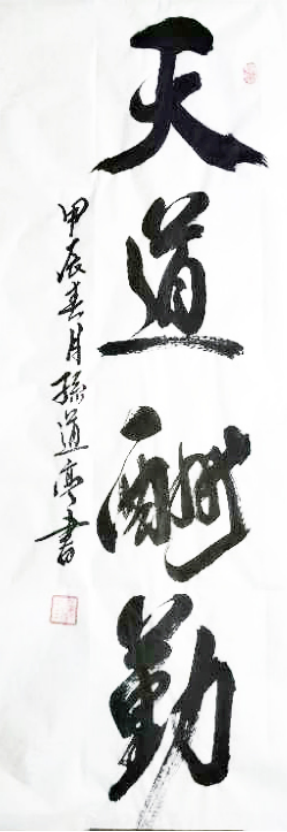 天道酬勤
甲辰春月孫道亭書